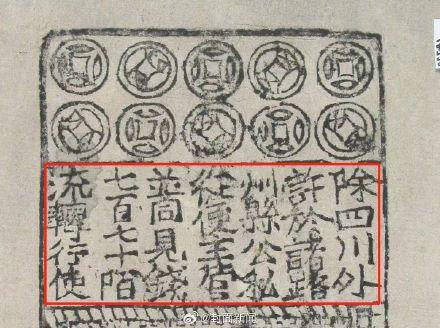 除四川外
許於諸路
州縣公私
從便主管
並同見錢
七百七十陌
流轉行使
@封面新闻